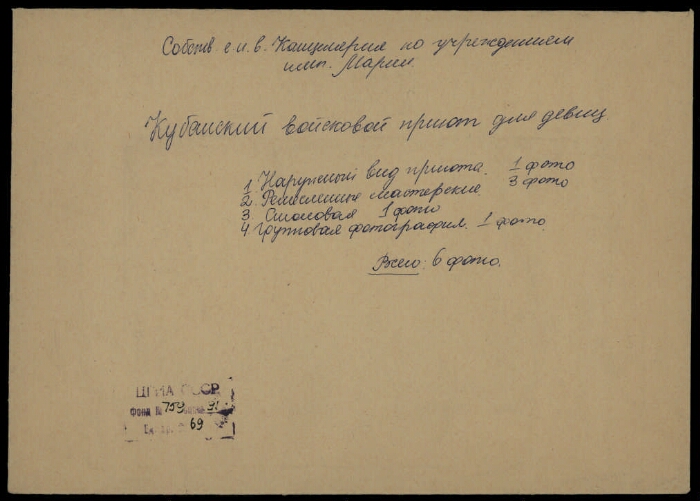 Собств е.и.в. Канцелярия по учреждениям
имп. Марии.
Кубанский войсковой приют для девиц.
1 Наружный вид приюта. 1 фото
2. Ремесленные мастерские. 3 фото
3. Столовая 1 фото
4 Групповая фотография. 1 фото.
Всего: 6 фото.
ЦГИА СССР
Фонд № 759 опись 91
69